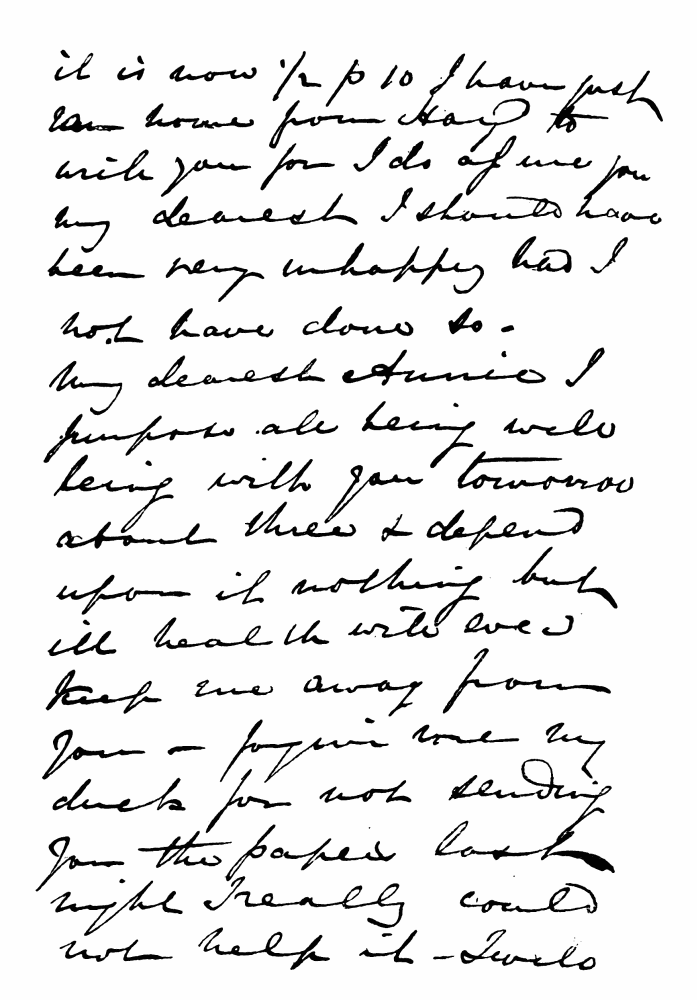 it is now ½ p 10 I have just
come home from Hay to
with you for I do of me you
my dearest I should have
been very unhappy had I
not have done so -
My dearest Annie I
purpose all being well
being with you tomorrow
about three & depend
upon it nothing but
ill health will ever
keep me away from
you - forgive me my
duck for not sending
you the paper last
night I really could
not help it - I will